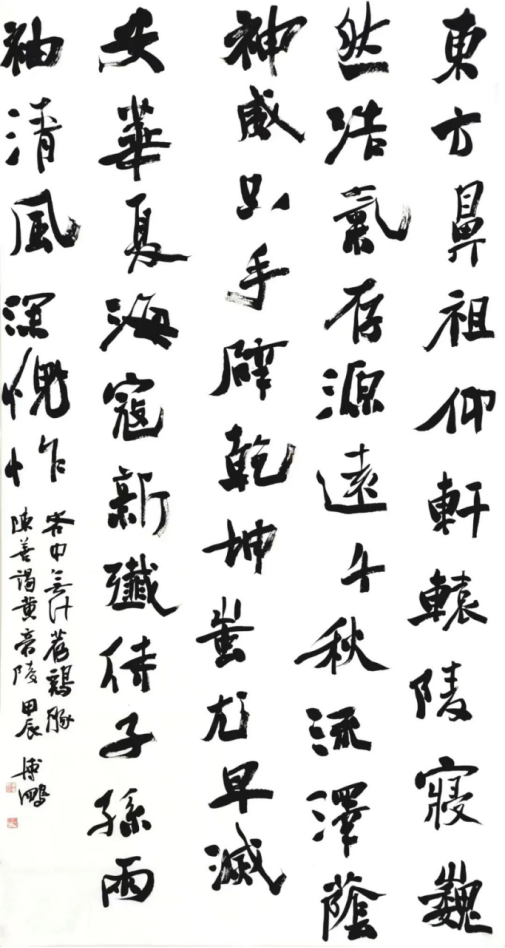 東方鼻祖仰軒轅陵寢巍
然浩氣存源遠千秋流澤蔭
神威只手辟乾坤蚩尤早滅
安華夏海寇新殲待子孫兩
袖清風深愧怍
客中無計薦鷄豚
陳善謁黄帝陵 甲辰 博鵬